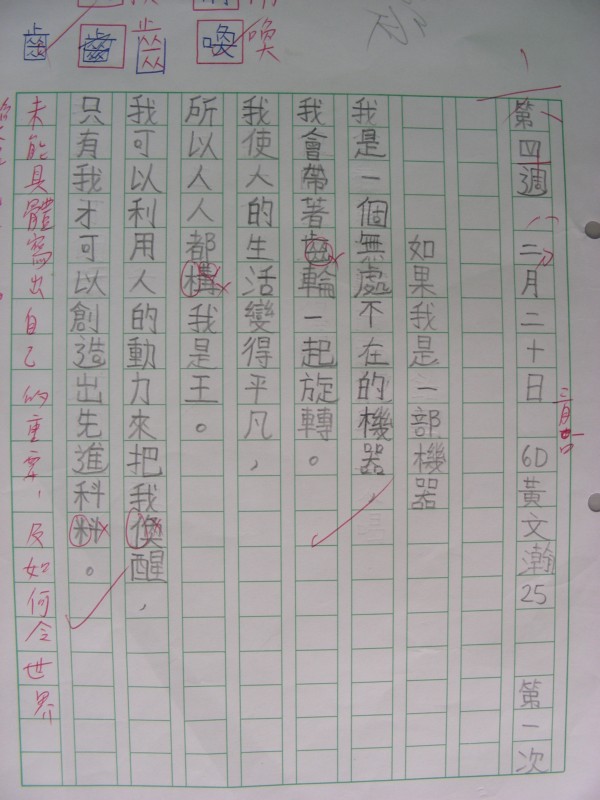 第四週 二月二十日 6D黃文瀚25 第一次
二月廿日
如果我是一部機器
我是一個無處不在的機器，
我會帶著齒輪一起旋轉。
我使人的生活變得平凡，
所以人人都構我是王。
我可以利用人的動力來把我換醒，
只有我才可以創造出先進科料。
未能具體寫出自己的重要，及如何令世界
齒 齒 齒
喚 喚